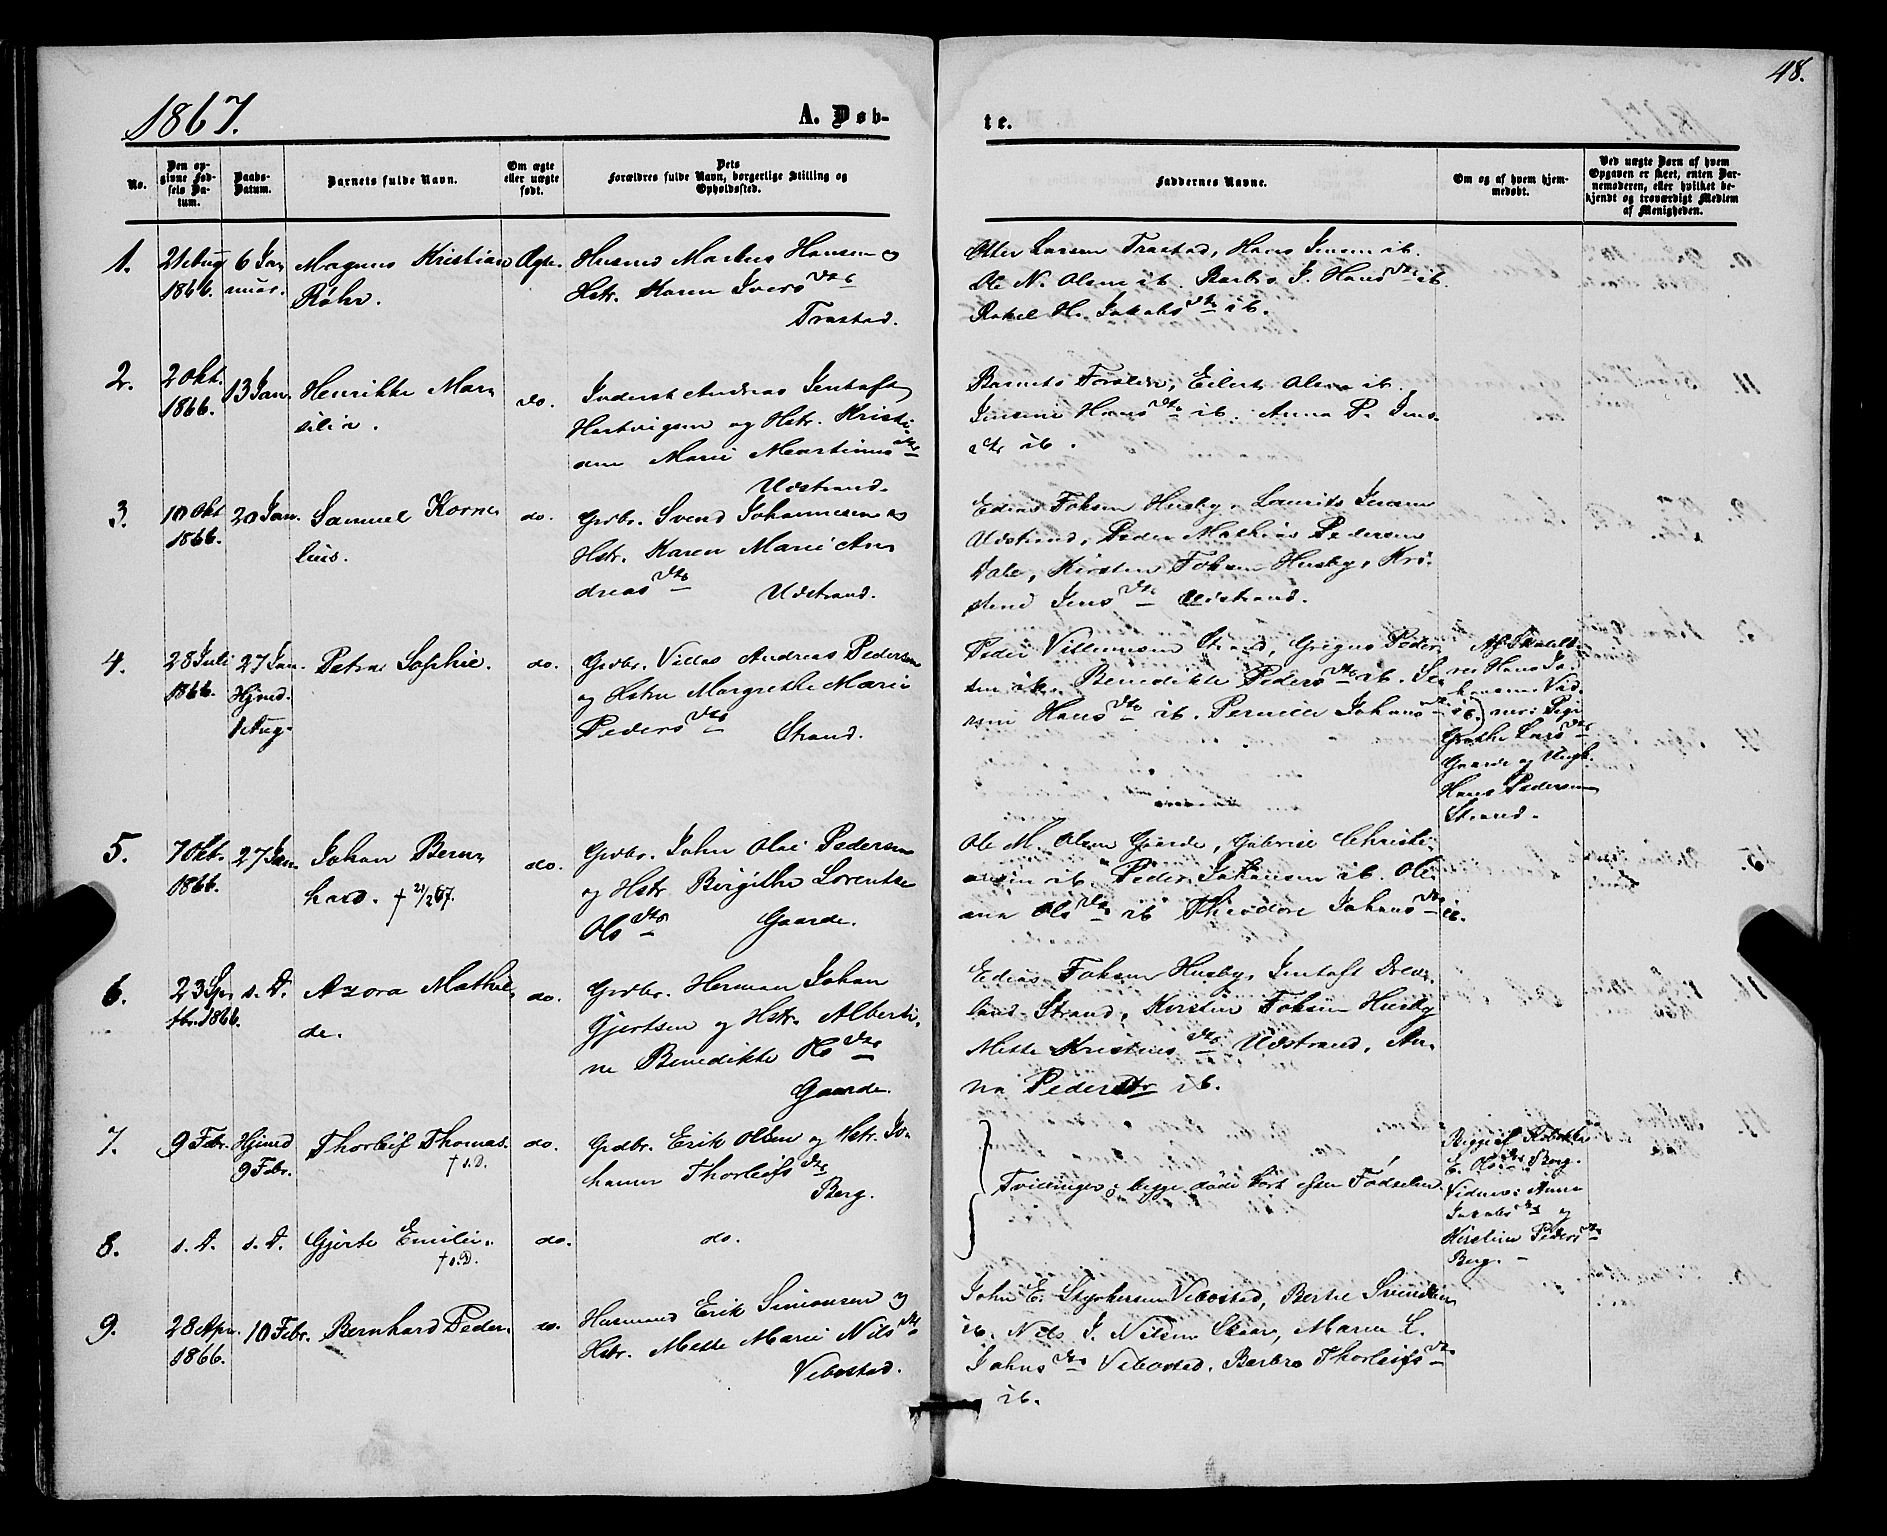 48.
1867.
A. Døb-
te.
No.
Den op-
givne Fød-
sels Da-
tum.
Daabs-
Datum.
Barnets fulde Navn.
Om ægte
eller uægte
født.
Dets
Forældres fulde Navn, borgerlige Stilling og
Opholdssted.
Faddernes Navne.
Om og af hvem hjem-
medøbt.
Ved uægte Børn af hvem
Opgaven er skeet, enten Bar-
nemoderen, eller hvilket be-
kjendt og troværdigt Medlem
af Menigheden.
1.
21 Aug
1866.
6 Jan
nuar.
Magnus Kristian
Røhr.
Ægte.
Husmd Markus Hansen og
Hstr. Karen Ivers dtr
Trastad.
Otter Larsen Trastad, Hans Jensen ib.
Ole N. Olsen ib. J. Hans dtr ib.
Rakel H. Jakobs dtr ib.
2.
2 Okt.
1866.
13 Jan.
Henrikke Mar-
silie.
do.
Inderst Andreas Jentoft
Hartvigsen og Hstr. Kristi-
ane Marie Martinus dtr
Udstrand.
Barnets Forældre, Eilert Olsen ib.
Jensine Hans dtr ib. Anna P. Jens
dtr ib.
3.
10 Okt
1866.
20 Jan.
Samuel Korne-
lius.
do.
Grdbr. Svend Johannesen og
Hstr. Karen Marie An-
dreas dtr Udstrand.
Edias Foksen Husby, Laurits Jensen
Udstrand, Peder Mathias Pedersen
Dale, Kirsten Foksen Husby, Kri-
stine Jens dtr Udstrand.
4.
28 Juli
1866.
27 Jan.
Hjmd.
1 Aug.
Petra Sophie.
do.
Grdbr. Villas Andreas Pedersen
og Hstru Margrethe Marie
Peders dtr Strand.
Peder Villumsen Strand, Grigus Peder-
sen ib. Benedikte Peders dtr ib. Se-
rine Hans dtr ib. Pernille Johans dtr ib.
Af Skolelæ-
rer Hans Jo-
hansen Vid-
ner: Pige
Grethe Lars dtr
Gaarde og Ungk.
Hans Pedersen
Strand.
5.
7 Okt.
1866.
27 Jan.
Johan Bern-
hard. † 21/2 67.
do.
Grdbr. John Olai Pedersen
og Hstr. Birgithe Lorentse
Ols dtr Gaarde.
Ole M. Olsen Gaarde, Gabriel Christi-
ansen ib. Peder Johansen ib. Oli-
ana Ols dtr ib Theodore Johans dtr ib.
6.
23 Sep-
tbr. 1866.
s. D.
Azora Mathil-
de.
do.
Grdbr. Herman Johan
Gjertsen og Hstr. Alberti-
ne Benedikte Ols dtr
Gaarde.
Edias Foksen Husby, Jentoft Drev-
land Strand, Kirsten Foksen Husby
Mette Kristines dtr Udstrand, An-
na Peders dtr ib.
7.
9 Febr.
Hjmd
9 Febr.
Thorleif Thomas.
† s. D.
do.
Grdbr. Erik Olsen og Hstr. Jo-
hanna Thorleifs dtr
Berg.
Tvillinger; begge døde kort efter Fødselen.
Begge af Rebekka
E. Ols dtr Berg.
Vidner: Anne
Jakobs dtr og
Kirstine Peders dtr
Berg.
8.
s. D.
s. D.
Gjerte Emilie.
† s. D.
do.
do.
9.
28 Apr.
1866.
10 Febr.
Bernhard Peder.
do.
Husmand Erik Simonsen og
Hstr. Mette Marie Nils dtr
Vebostad.
John E. Styrkersen Vebostad, Bertel Svendsen
ib. Nils J. Nilsen Skaar, Maren L.
Johns dtr Vebostad, Berbro Thorleifs dtr
ib.